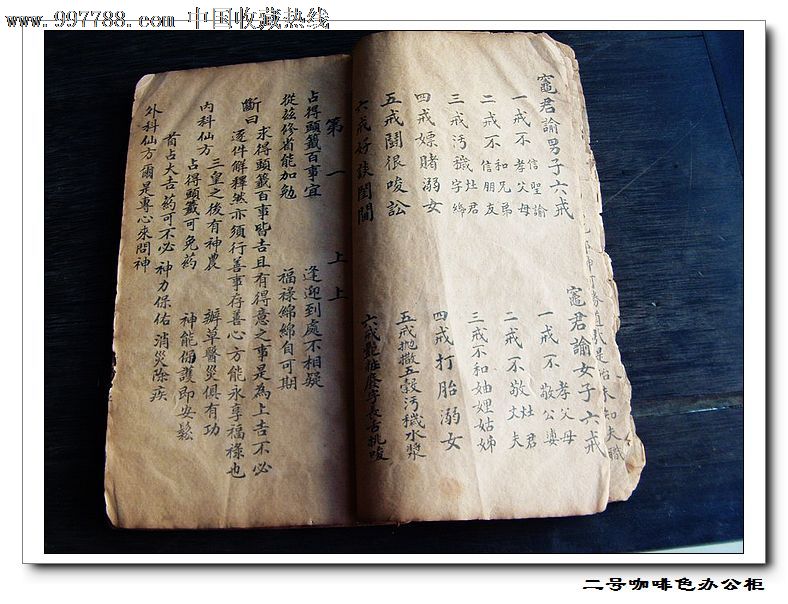 www.997788.com 中国收藏热线
竈君諭男子六戒
一戒不孝父母信聖諭
二戒不和兄弟信朋友
三戒污穢灶君字綿
四戒嫖賭溺女
五戒鬪很唆訟
六戒好談閨閫
竈君諭女子六戒
一戒不孝父母敬公婆
二戒不敬灶君丈夫
三戒不和妯娌姑姊
四戒打胎溺女
五戒抛撒五穀污穢水漿
六戒艷粧廢字長舌挑唆
第一 上上
占得頭籤百事宜 逢迎到處不相疑
從茲修省能加勉 福祿綿綿自可期
斷曰 求得頭籤百事皆吉且有得意之事是為上吉不必
逐件解釋然亦須行善事存善心方能永享福祿也
內科仙方 三皇之後有神農 辦草醫災俱有功
占得頭籤可免藥 神能佃護即安鬆
首占大吉药可不必 神力保佑 消災除疾
外科仙方 爾是專心來問神
二号咖啡色办公柜